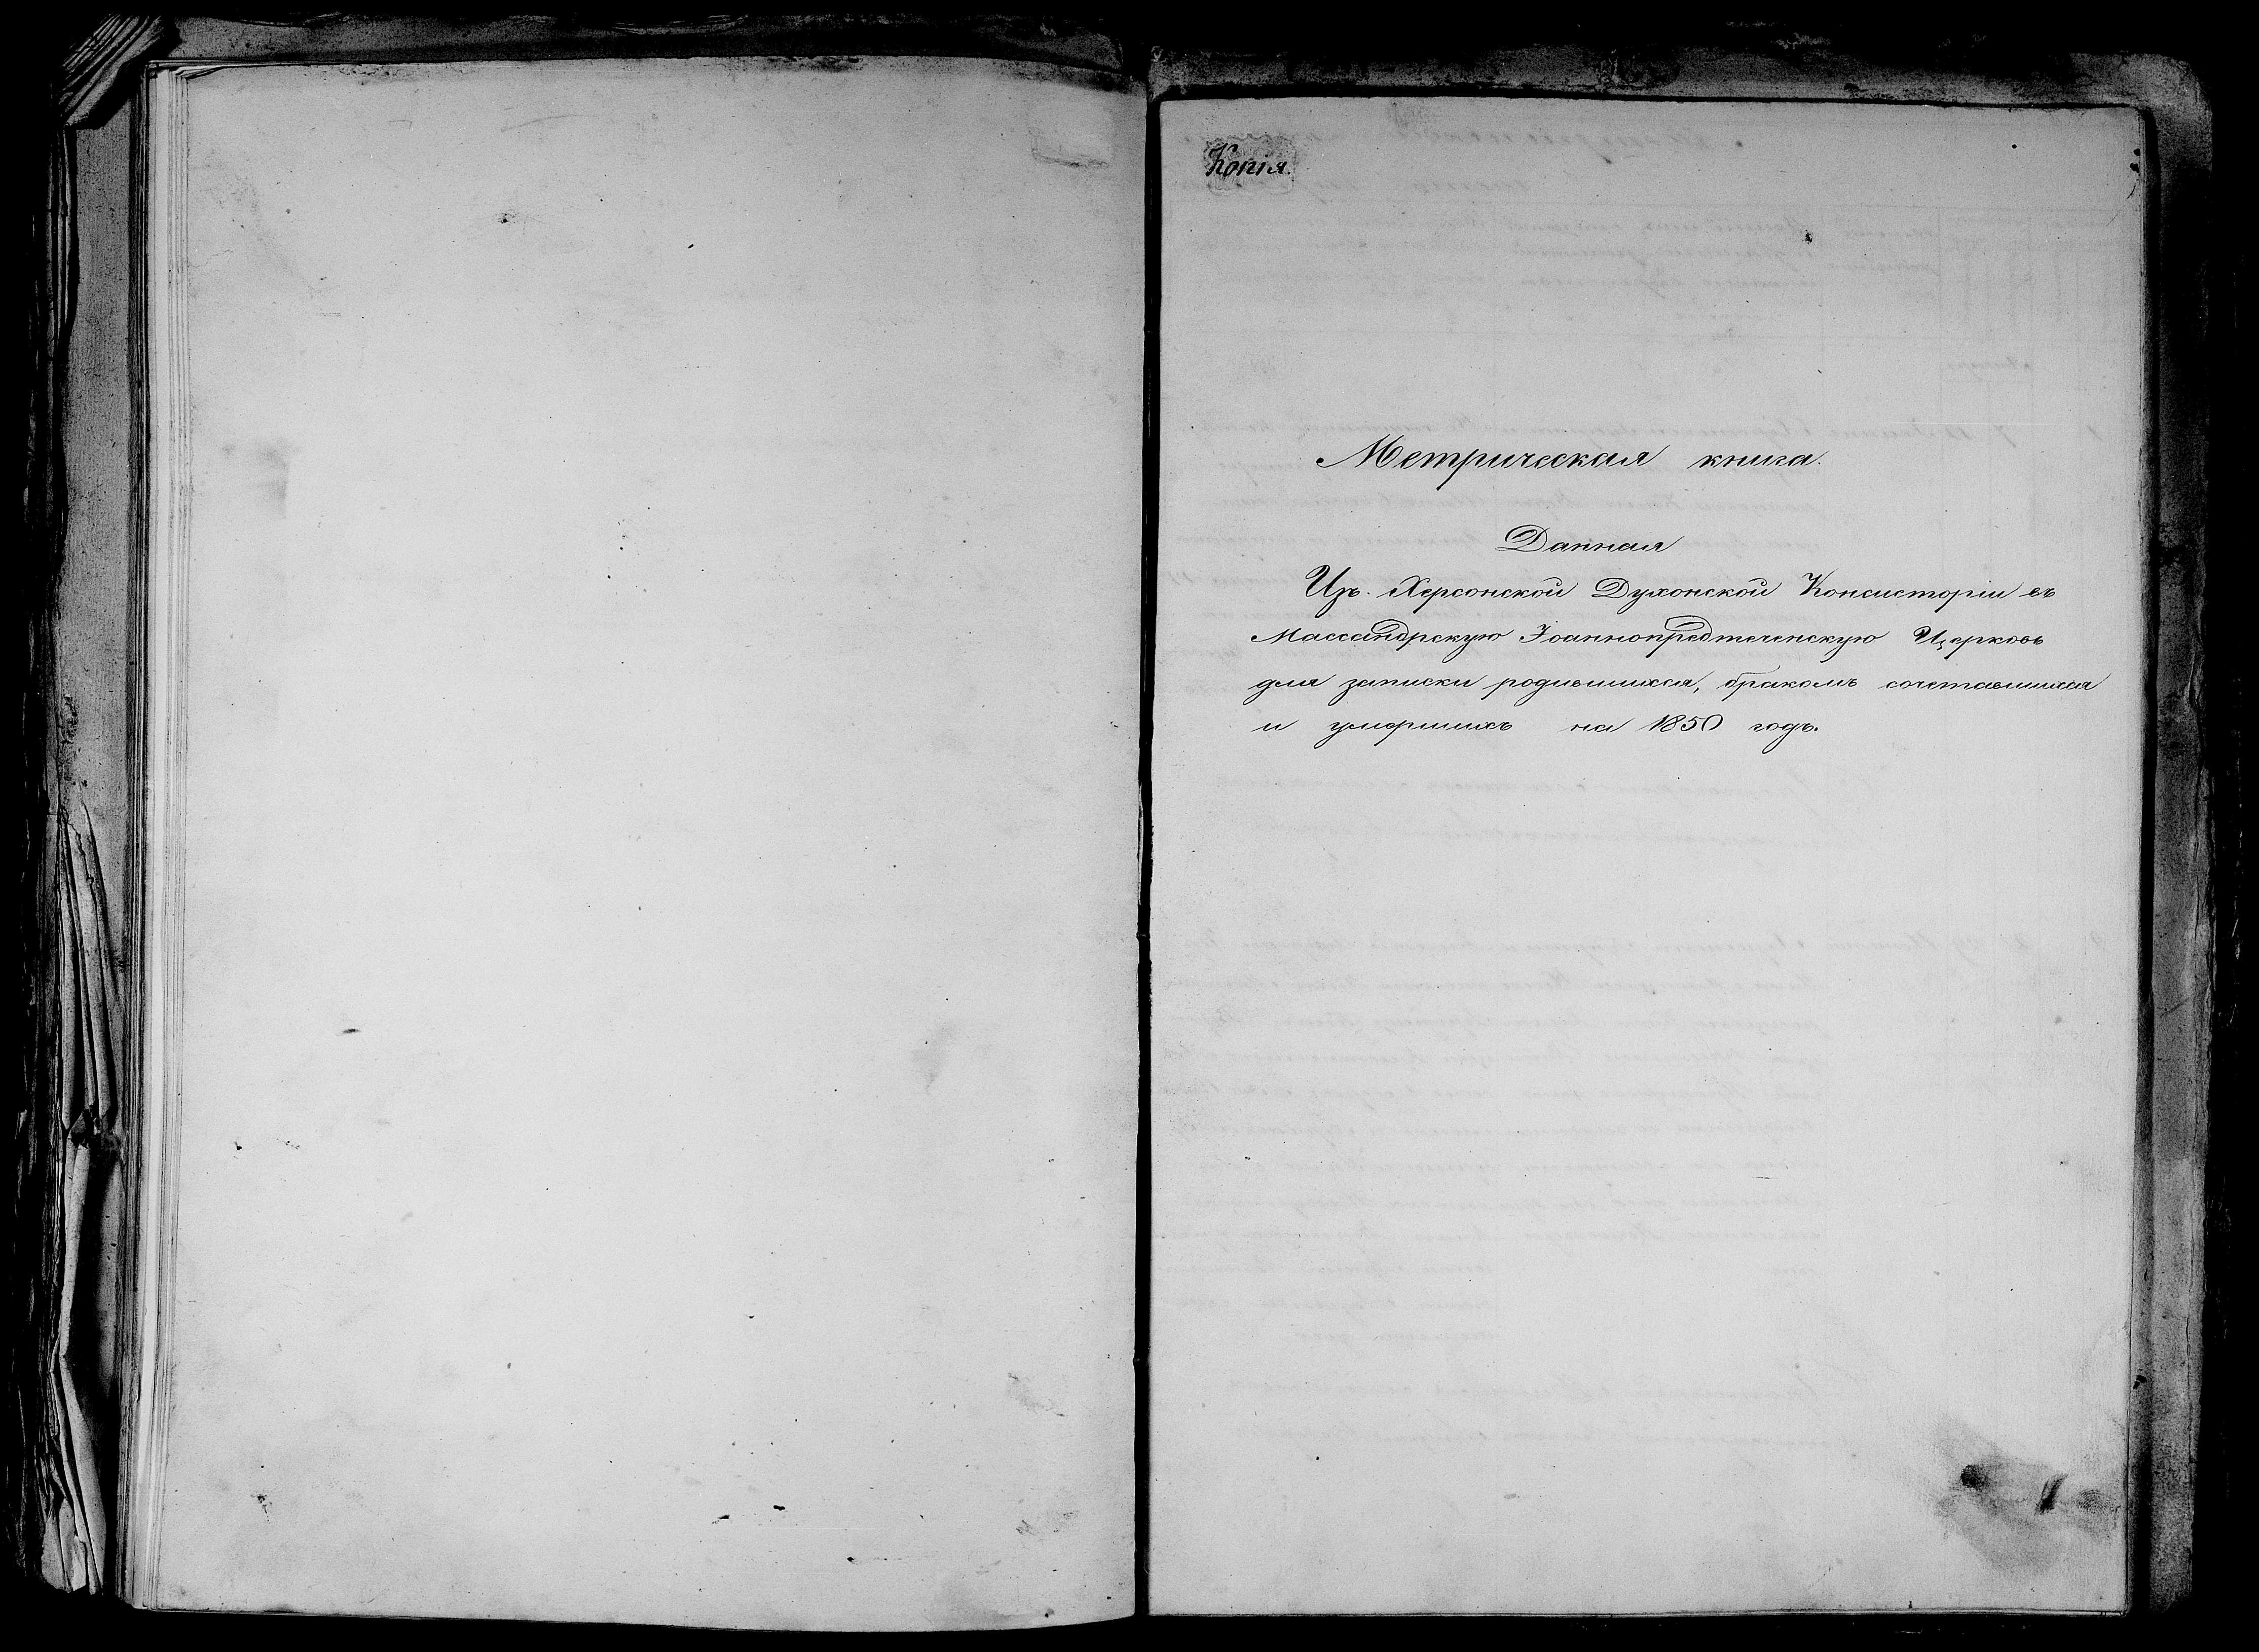 Копія.
Метрическая книга.
Данная
Изъ Херсонской Духонской Консисторіи въ
Массандрскую Іоаннопредтеченскую Церковь
для записки родившихся, бракомъ сочетавшихся
и умершихъ на 1850 годъ.